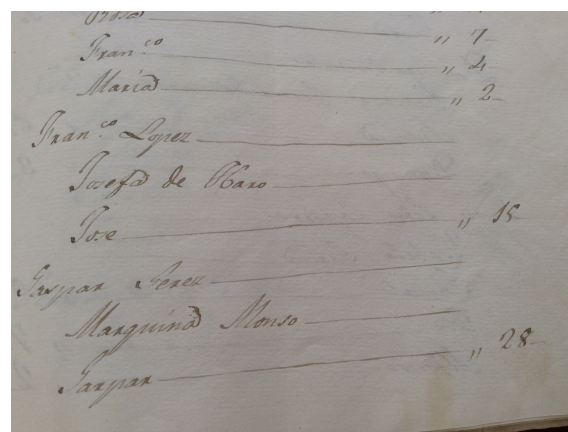 Rosa " 7
Fran.co " 4
Maria " 2
Fran.co Lopez
Josefa de Haro
Jose " 15
Gaspar Perez
Marquina Alonso
Gaspar " 28